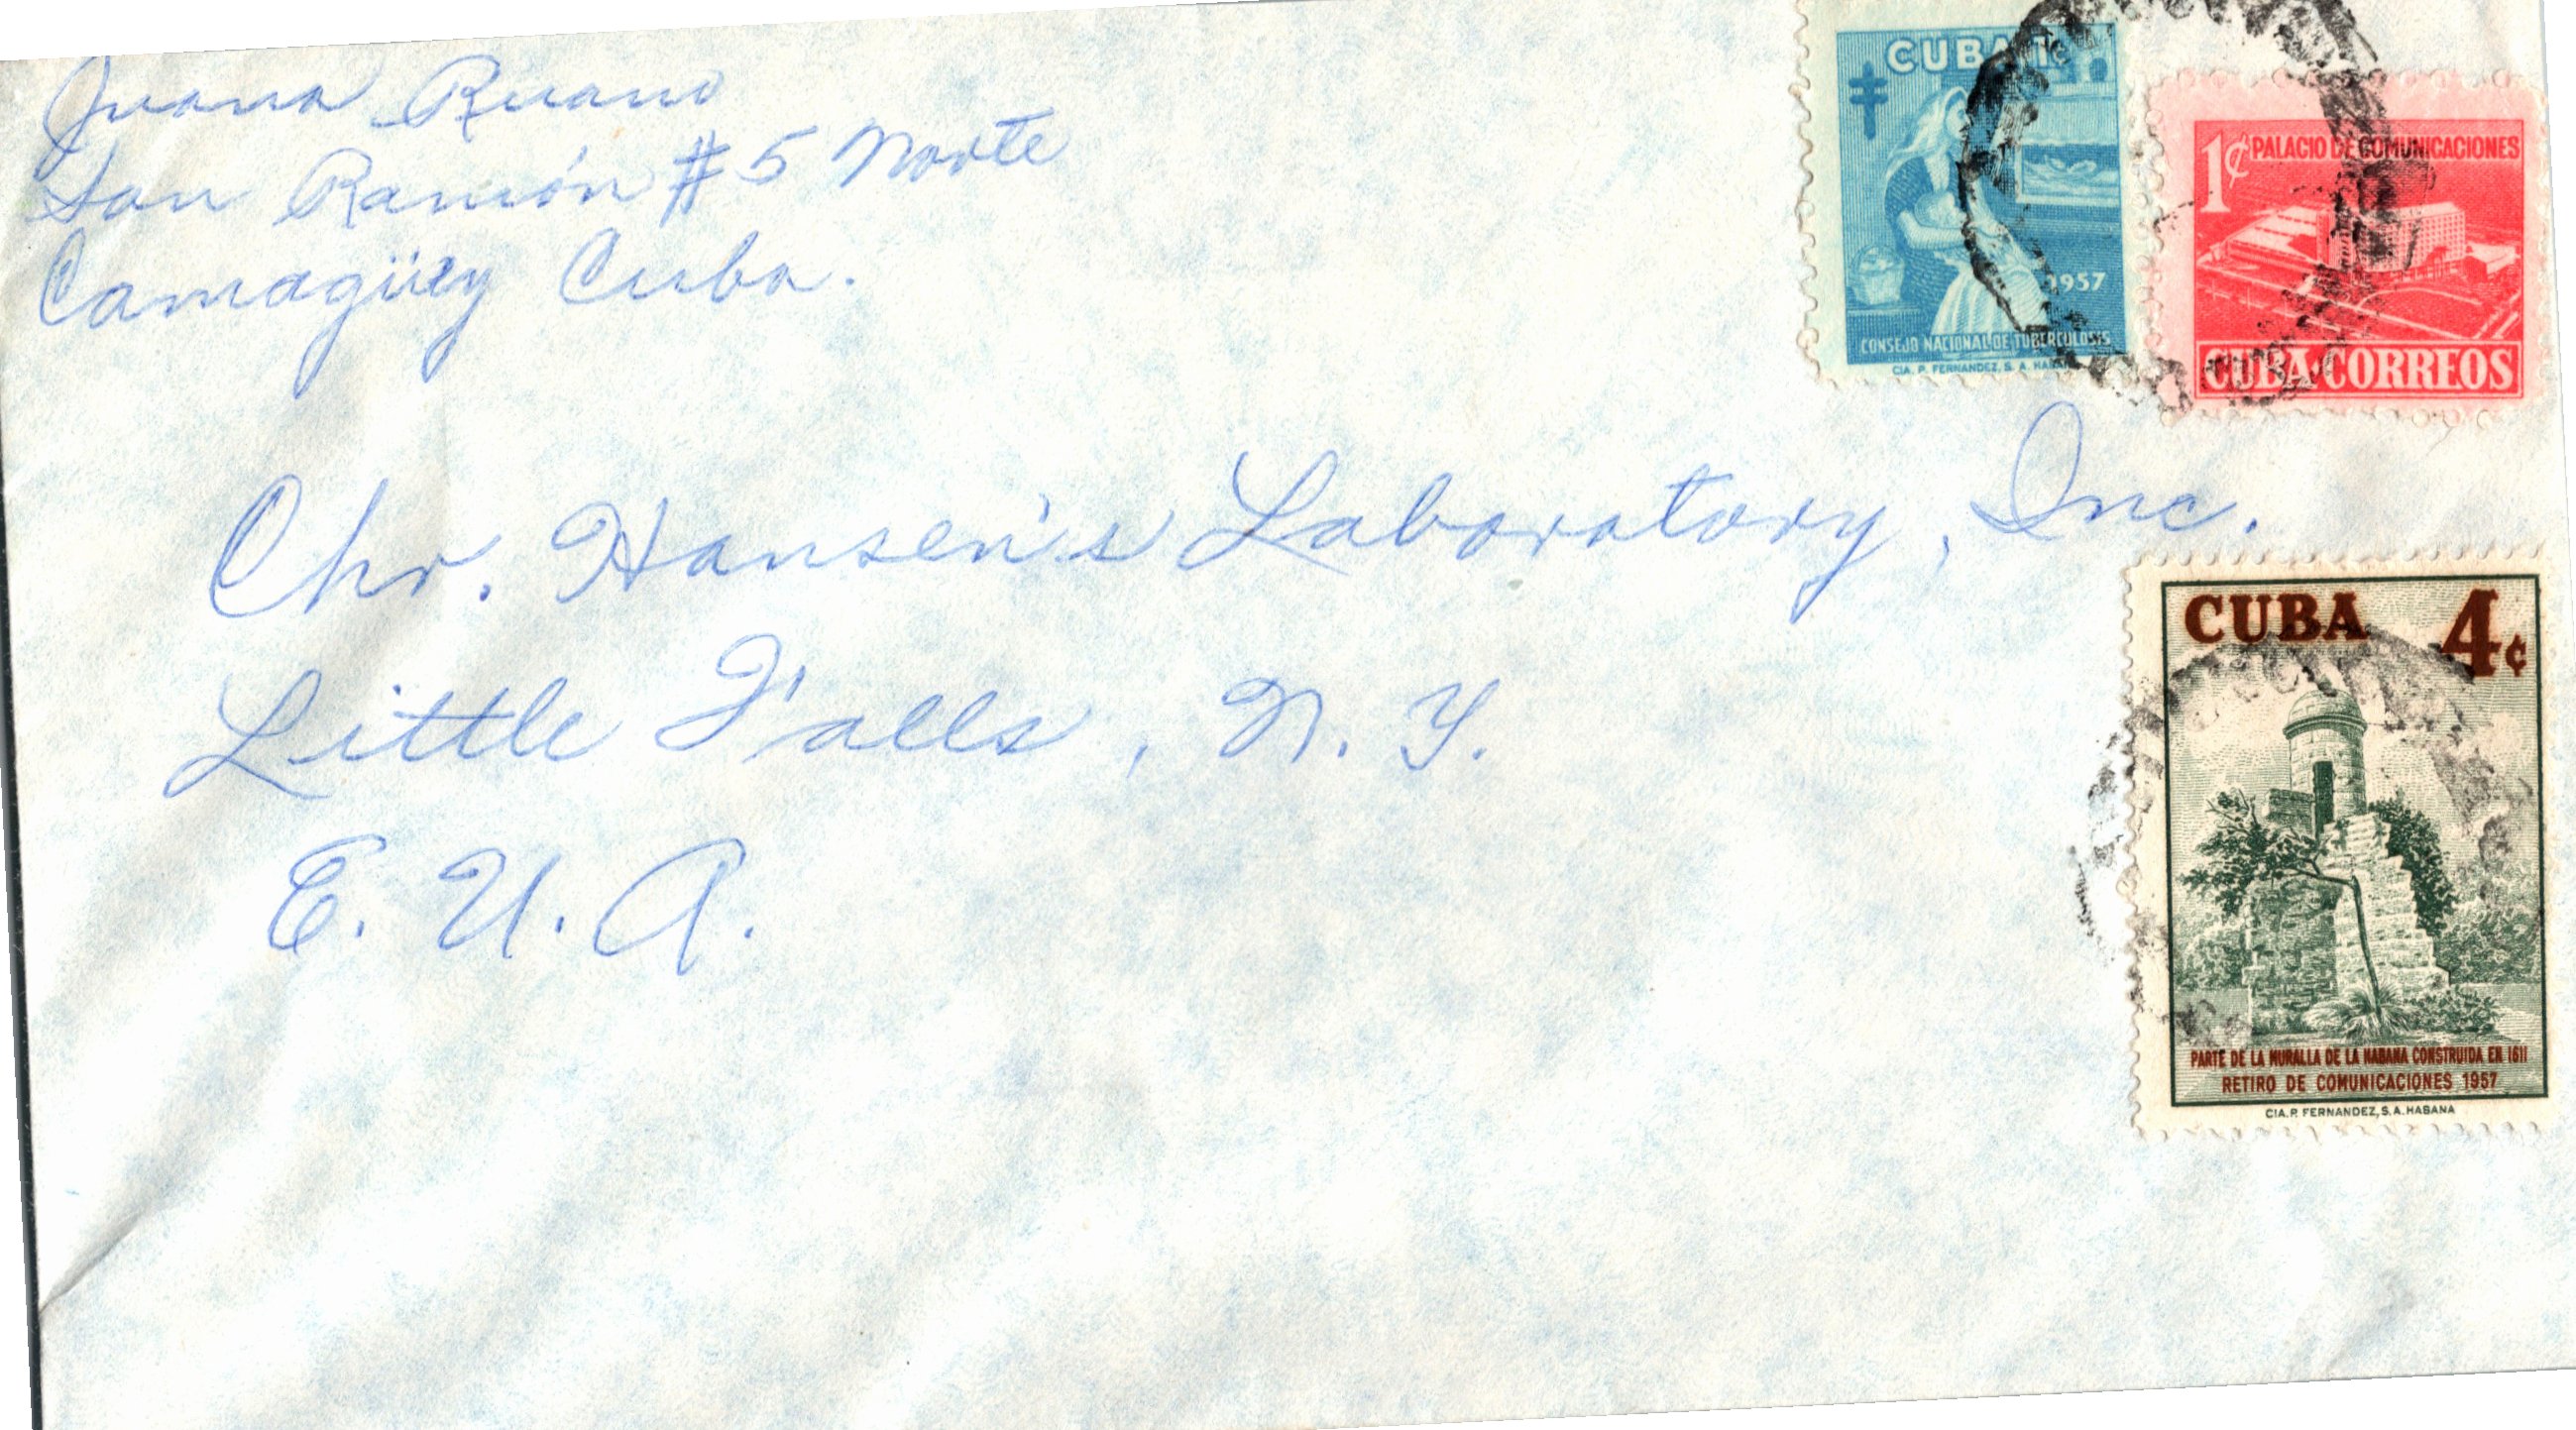 Juana Ruano
San Ramón # 5 Norte
Camagüey Cuba.
CUBA 1¢
1957
CONSEJO NACIONAL DE TUBERCULOSIS
CIA. P. FERNANDEZ, S. A. HABANA
1¢ PALACIO DE COMUNICACIONES
CUBA CORREOS
Chr. Hansen's Laboratory, Inc.
Little Falls, N. Y.
E. U. A.
CUBA 4¢
PARTE DE LA MURALLA DE LA HABANA CONSTRUIDA EN 1611
RETIRO DE COMUNICACIONES 1957
CIA. P. FERNANDEZ, S. A. HABANA